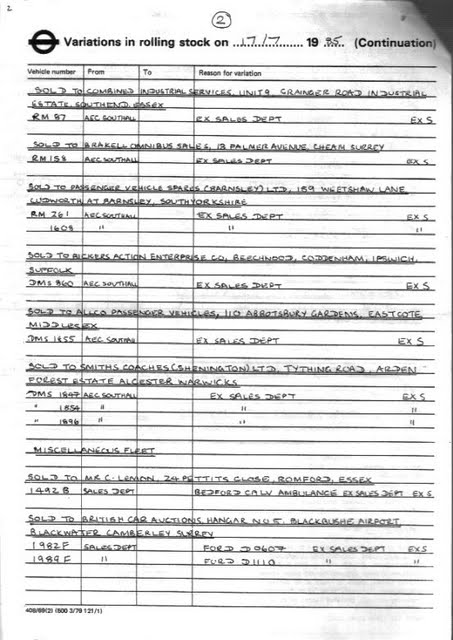 2
2
Variations in rolling stock on 17/7 1985 (Continuation)
Vehicle number From To Reason for variation
SOLD TO COMBINED INDUSTRIAL SERVICES, UNIT 9, GRAINGER ROAD INDUSTRIAL
ESTATE, SOUTHEND, ESSEX
RM 87 AEC SOUTHALL EX SALES DEPT EX S
SOLD TO BRAKELL OMNIBUS SALES, 13 PALMER AVENUE, CHEAM SURREY
RM 158 AEC SOUTHALL EX SALES DEPT EX S
SOLD TO PASSENGER VEHICLE SPARES (BARNSLEY) LTD, 189 WEETSHAW LANE,
CUDWORTH AT BARNSLEY, SOUTH YORKSHIRE
RM 261 AEC SOUTHALL EX SALES DEPT EX S
1608 " " "
SOLD TO RICKERS ACTION ENTERPRISE CO, BEECHWOOD, CODDENHAM, IPSWICH,
SUFFOLK
DMS 860 AEC SOUTHALL EX SALES DEPT EX S
SOLD TO ALLCO PASSENGER VEHICLES, 110 ABBOTSBURY GARDENS, EASTCOTE
MIDDLESEX
DMS 1455 AEC SOUTHALL EX SALES DEPT EX S
SOLD TO SMITHS COACHES (SHENINGTON) LTD, TYTHING ROAD, ARDEN
FOREST ESTATE ALCESTER WARWICKS
DMS 1847 AEC SOUTHALL EX SALES DEPT EX S
" 1854 " " "
" 1896 " " "
MISCELLANEOUS FLEET
SOLD TO MR C. LEMON, 24 PETTITS CLOSE, ROMFORD, ESSEX
1492 B SALES DEPT BEDFORD CALV AMBULANCE EX SALES DEPT EX S
SOLD TO BRITISH CAR AUCTIONS, HANGAR NO 5, BLACKBUSHE AIRPORT,
BLACKWATER CAMBERLEY SURREY
1982 F SALES DEPT FORD D0607 EX SALES DEPT EX S
1989 F " FORD D1110 " "
409/89(2) (500 3/79 121/1)